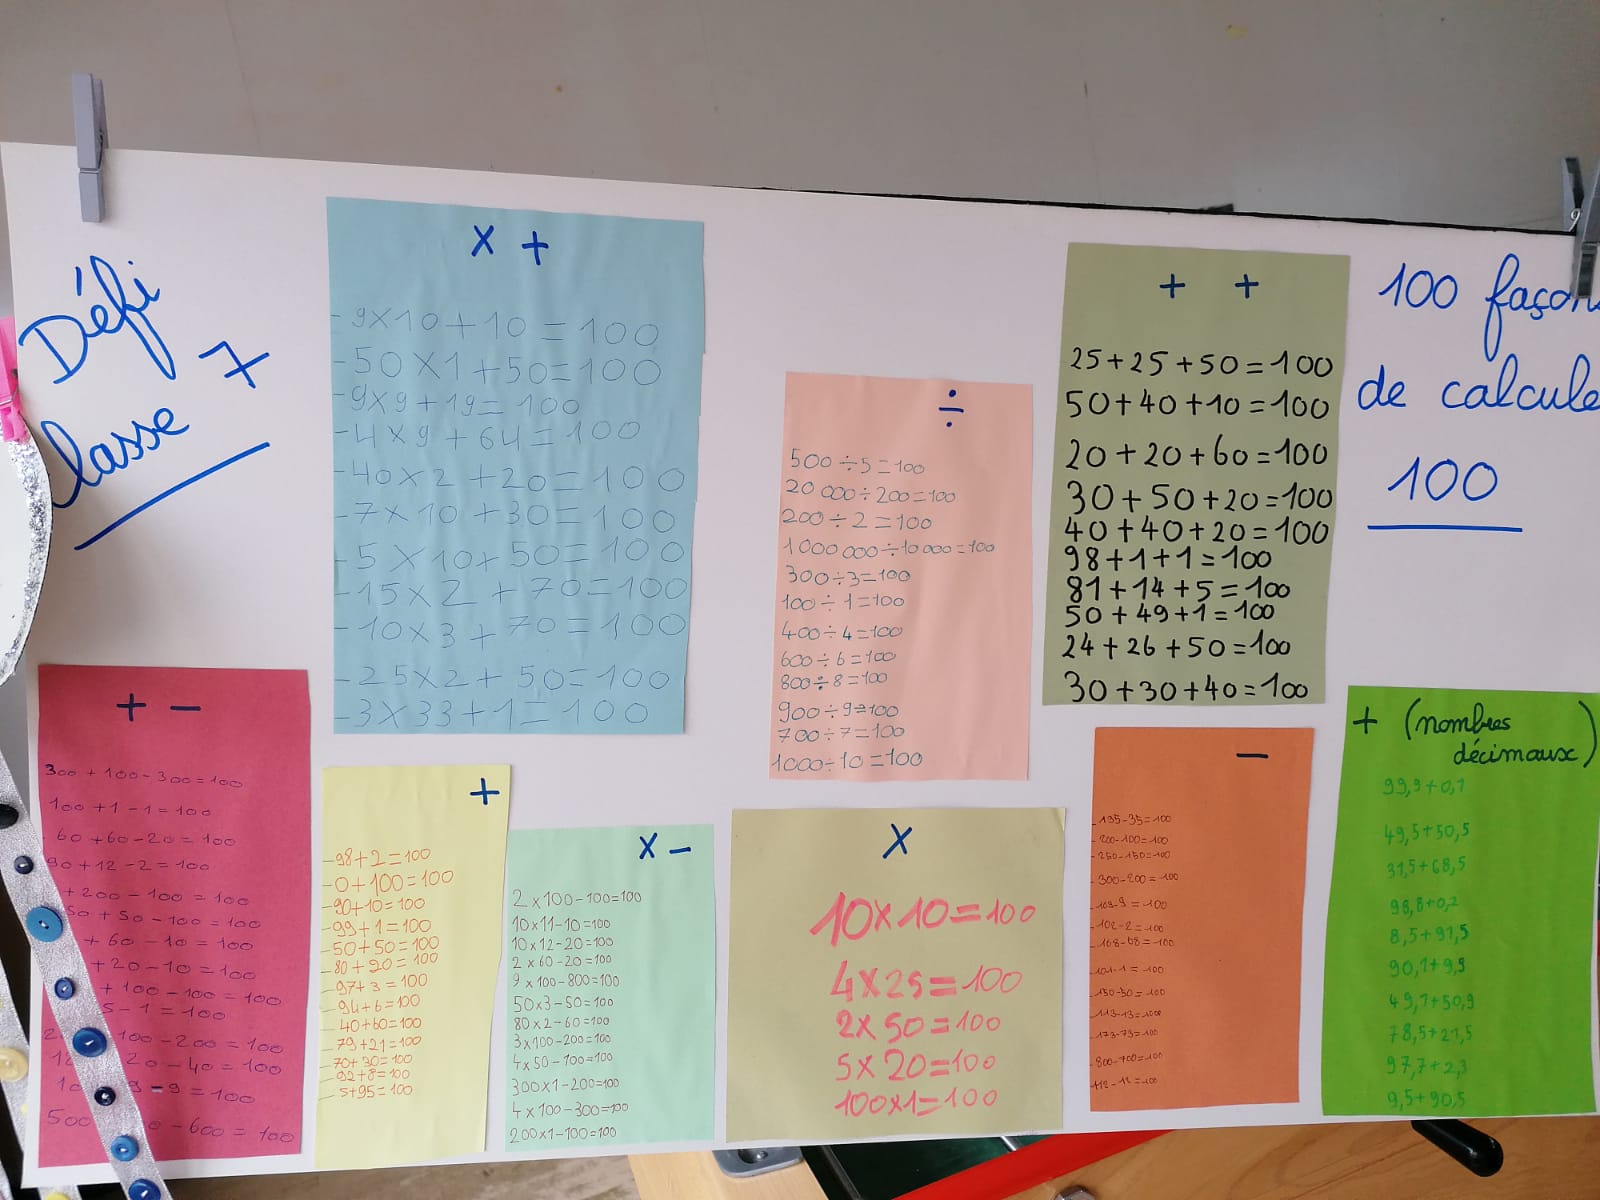 Défi
classe 7
100 façons
de calcule
100
x +
- 9x10+10 = 100
-50x1+50=100
-9x9+19= 100
-4x9+64=100
-40x2+20=100
-7x10+30=100
-5x10+50=100
-15x2+70=100
-10x3+70=100
-25x2+50=100
-3x33+1=100
÷
500÷5=100
20 000÷200=100
200÷2=100
1000 000÷10 000=100
300÷3=100
100÷1=100
400÷4=100
600÷6=100
800÷8=100
900÷9=100
700÷7=100
1000÷10=100
+ +
25+25+50=100
50+40+10=100
20+20+60=100
30+50+20=100
40+40+20=100
98+1+1=100
81+14+5=100
50+49+1=100
24+26+50=100
30+30+40=100
+ -
300+100-300=100
100+1-1=100
60+60-20=100
90+12-2=100
+200-100=100
50+50-100=100
+60-10=100
+20-10=100
+100-100=100
5-1=100
100-200=100
20-40=100
9-9=100
500 0-600=100
+
-98+2=100
-0+100=100
-90+10=100
-99+1=100
-50+50=100
-80+20=100
-97+3=100
-94+6=100
40+60=100
-79+21=100
70+30=100
-92+8=100
5+95=100
x -
2x100-100=100
10x11-10=100
10x12-20=100
2x60-20=100
9x100-800=100
50x3-50=100
80x2-60=100
3x100-200=100
4x50-100=100
300x1-200=100
4x100-300=100
200x1-100=100
x
10x10=100
4x25=100
2x50=100
5x20=100
100x1=100
-
-135-35=100
-200-100=100
-250-150=100
-300-200=100
-109-9=100
-102-2=100
-168-68=100
-101-1=100
-150-50=100
-113-13=100
-173-73=100
-800-700=100
-112-12=100
+ (nombres
décimaux)
99,9+0,1
49,5+50,5
31,5+68,5
98,8+0,2
8,5+91,5
90,1+9,9
49,1+50,9
78,5+21,5
97,7+2,3
9,5+90,5